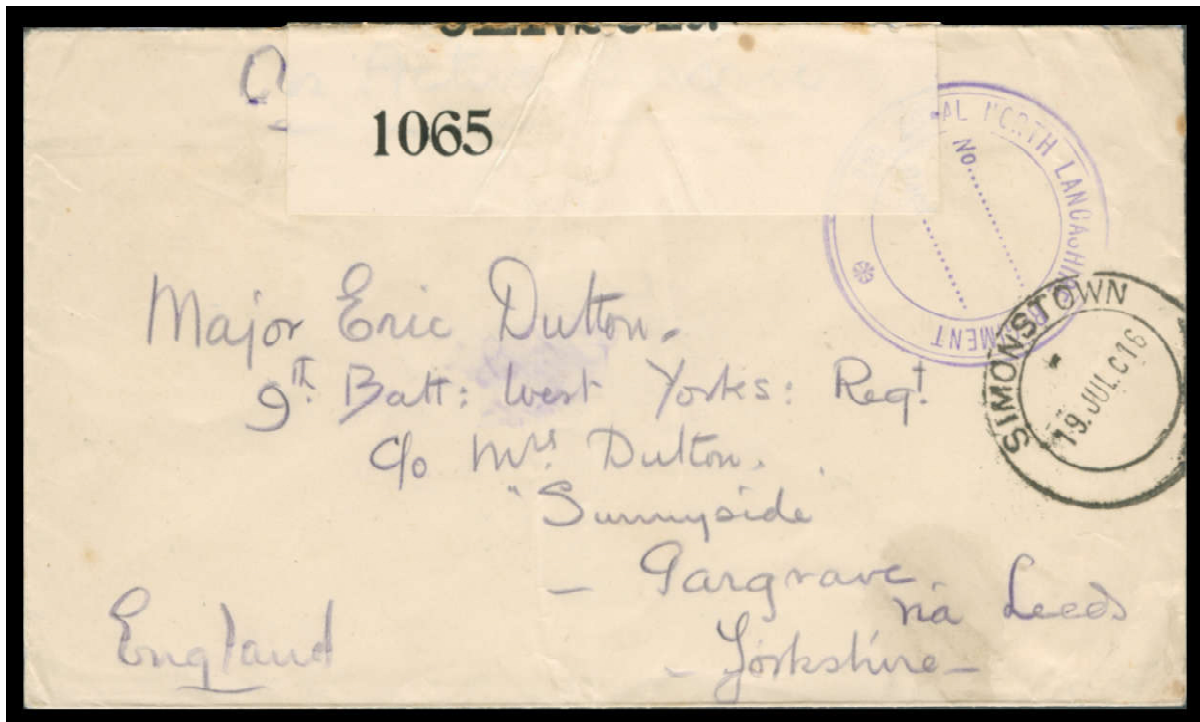 CENSOR.
On
1065
AL NORTH LANCASHIRE REGIMENT
No.
SIMONSTOWN
19 JUL. C 16
Major Eric Dutton.
9th. Batt: West Yorks: Regt.
c/o Mrs. Dutton.
"Sunnyside"
– Gargrave.
via Leeds
– Yorkshire –
England